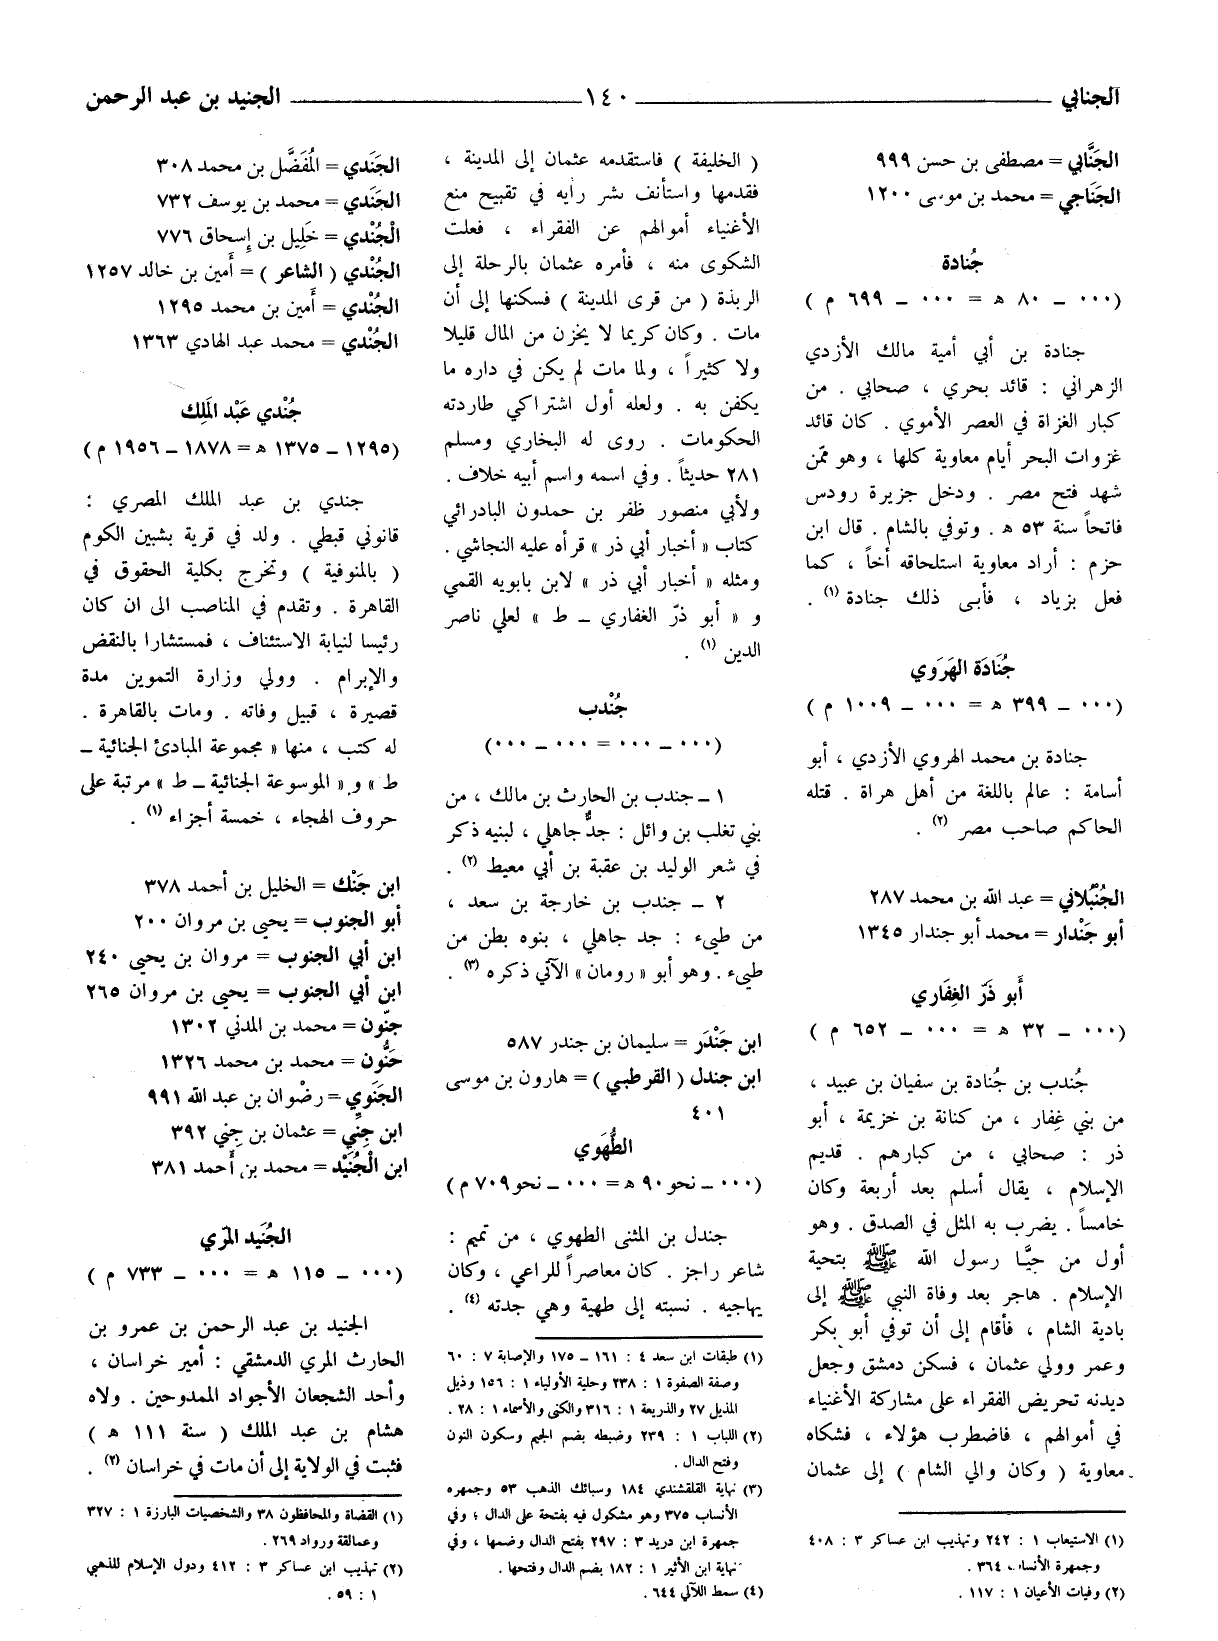 الجنابي ١٤٠ الجنيد بن عبد الرحمن
الجَنَّابي = مصطفى بن حسن ٩٩٩
الجَنَاجي = محمد بن موسى ١٢٠٠
جُنادة
(٠٠٠ ــ ٨٠ هـ = ٠٠٠ ــ ٦٩٩ م )
جنادة بن أبي أمية مالك الأزدي
الزهراني : قائد بحري ، صحابي . من
كبار الغزاة في العصر الأموي . كان قائد
غزوات البحر أيام معاوية كلها ، وهو ممّن
شهد فتح مصر . ودخل جزيرة رودس
فاتحاً سنة ٥٣ هـ . وتوفي بالشام . قال ابن
حزم : أراد معاوية استلحاقه أخاً ، كما
فعل بزياد ، فأبى ذلك جنادة (١) .
جُنَادَة الهَرَوي
(٠٠٠ ــ ٣٩٩ هـ = ٠٠٠ ــ ١٠٠٩ م )
جنادة بن محمد الهروي الأزدي ، أبو
أسامة : عالم باللغة من أهل هراة . قتله
الحاكم صاحب مصر (٢) .
الجُنْبُلاني = عبد الله بن محمد ٢٨٧
أبو جَنْدار = محمد أبو جندار ١٣٤٥
أَبو ذَرّ الغِفَاري
(٠٠٠ ــ ٣٢ هـ = ٠٠٠ ــ ٦٥٢ م )
جُندب بن جُنادة بن سفيان بن عبيد ،
من بني غِفار ، من كنانة بن خزيمة ، أبو
ذر : صحابي ، من كبارهم . قديم
الإسلام ، يقال أسلم بعد أربعة وكان
خامساً . يضرب به المثل في الصدق . وهو
أول من حيَّا رسول الله ﷺ بتحية
الإسلام . هاجر بعد وفاة النبي ﷺ إلى
بادية الشام ، فأقام إلى أن توفي أبو بكر
وعمر وولي عثمان ، فسكن دمشق وجعل
ديدنه تحريض الفقراء على مشاركة الأغنياء
في أموالهم ، فاضطرب هؤلاء ، فشكاه
معاوية ( وكان والي الشام ) إلى عثمان
(١) الاستيعاب ١ : ٢٤٢ وتهذيب ابن عساكر ٣ : ٤٠٨
وجمهرة الأنساب ٣٦٤ .
(٢) وفيات الأعيان ١ : ١١٧ .
( الخليفة ) فاستقدمه عثمان إلى المدينة ،
فقدمها واستأنف نشر رأيه في تقبيح منع
الأغنياء أموالهم عن الفقراء ، فعلت
الشكوى منه ، فأمره عثمان بالرحلة إلى
الربذة ( من قرى المدينة ) فسكنها إلى أن
مات . وكان كريما لا يخزن من المال قليلا
ولا كثيراً ، ولما مات لم يكن في داره ما
يكفن به . ولعله أول اشتراكي طاردته
الحكومات . روى له البخاري ومسلم
٢٨١ حديثاً . وفي اسمه واسم أبيه خلاف .
ولأبي منصور ظفر بن حمدون البادرائي
كتاب « أخبار أبي ذر » قرأه عليه النجاشي .
ومثله « أخبار أبي ذر » لابن بابويه القمي
و « أبو ذرّ الغفاري ــ ط » لعلي ناصر
الدين (١) .
جُنْدب
(٠٠٠ ــ ٠٠٠ = ٠٠٠ ــ ٠٠٠)
١ ــ جندب بن الحارث بن مالك ، من
بني تغلب بن وائل : جدٌّ جاهلي ، لبنيه ذكر
في شعر الوليد بن عقبة بن أبي معيط (٢) .
٢ ــ جندب بن خارجة بن سعد ،
من طيىء : جد جاهلي ، بنوه بطن من
طيىء . وهو أبو « رومان » الآتي ذكره (٣) .
ابن جَنْدَر = سليمان بن جندر ٥٨٧
ابن جندل ( القرطبي ) = هارون بن موسى
٤٠١
الطُّهَوي
(٠٠٠ ــ نحو ٩٠ هـ = ٠٠٠ ــ نحو ٧٠٩ م )
جندل بن المثنى الطهوي ، من تميم :
شاعر راجز . كان معاصراً للراعي ، وكان
يهاجيه . نسبته إلى طهية وهي جدته (٤) .
(١) طبقات ابن سعد ٤ : ١٦١ ــ ١٧٥ والإصابة ٧ : ٦٠
وصفة الصفوة ١ : ٢٣٨ وحلية الأولياء ١ : ١٥٦ وذيل
المذيل ٢٧ والذريعة ١ : ٣١٦ والكنى والأسماء ١ : ٢٨ .
(٢) اللباب ١ : ٢٣٩ وضبطه بضم الجيم وسكون النون
وفتح الدال .
(٣) نهاية القلقشندي ١٨٤ وسبائك الذهب ٥٣ وجمهره
الأنساب ٣٧٥ وهو مشكول فيه بفتحة على الدال ؛ وفي
جمهرة ابن دريد ٣ : ٢٩٧ بفتح الدال وضمها ، وفي
نهاية ابن الأثير ١ : ١٨٢ بضم الدال وفتحها .
(٤) سمط اللآلي ٦٤٤ .
الجَنَدي = المُفَضَّل بن محمد ٣٠٨
الجَنَدي = محمد بن يوسف ٧٣٢
الْجُنْدي = خَلِيل بن إِسحاق ٧٧٦
الجُنْدي ( الشاعر ) = أَمين بن خالد ١٢٥٧
الجُنْدي = أَمين بن محمد ١٢٩٥
الجُنْدي = محمد عبد الهادي ١٣٦٣
جُنْدي عَبْد المَلِك
(١٢٩٥ ــ ١٣٧٥ هـ = ١٨٧٨ ــ ١٩٥٦ م )
جندي بن عبد الملك المصري :
قانوني قبطي . ولد في قرية بشبين الكوم
( بالمنوفية ) وتخرج بكلية الحقوق في
القاهرة . وتقدم في المناصب الى ان كان
رئيسا لنيابة الاستئناف ، فمستشارا بالنقض
والإبرام . وولي وزارة التموين مدة
قصيرة ، قبيل وفاته . ومات بالقاهرة .
له كتب ، منها « مجموعة المبادئ الجنائية ــ
ط » و « الموسوعة الجنائية ــ ط » مرتبة على
حروف الهجاء ، خمسة أجزاء (١) .
ابن جَنْك = الخليل بن أحمد ٣٧٨
أبو الجنوب = يحيى بن مروان ٢٠٠
ابن أبي الجنوب = مروان بن يحيى ٢٤٠
ابن أبي الجنوب = يحيى بن مروان ٢٦٥
جنّون = محمد بن المدني ١٣٠٢
جَنُّون = محمد بن محمد ١٣٢٦
الجَنَوي = رضْوان بن عبد الله ٩٩١
ابن جِنّي = عثمان بن جِني ٣٩٢
ابن الْجُنَيْد = محمد بن أَحمد ٣٨١
الجُنَيد المرّي
(٠٠٠ ــ ١١٥ هـ = ٠٠٠ ــ ٧٣٣ م )
الجنيد بن عبد الرحمن بن عمرو بن
الحارث المري الدمشقي : أمير خراسان ،
وأحد الشجعان الأجواد الممدوحين . ولاه
هشام بن عبد الملك ( سنة ١١١ هـ )
فثبت في الولاية إلى أن مات في خراسان (٢) .
(١) القضاة والمحافظون ٣٨ والشخصيات البارزة ١ : ٣٢٧
وعمالقة ورواد ٢٦٩ .
(٢) تهذيب ابن عساكر ٣ : ٤١٢ ودول الإسلام للذهبي
١ : ٥٩ .